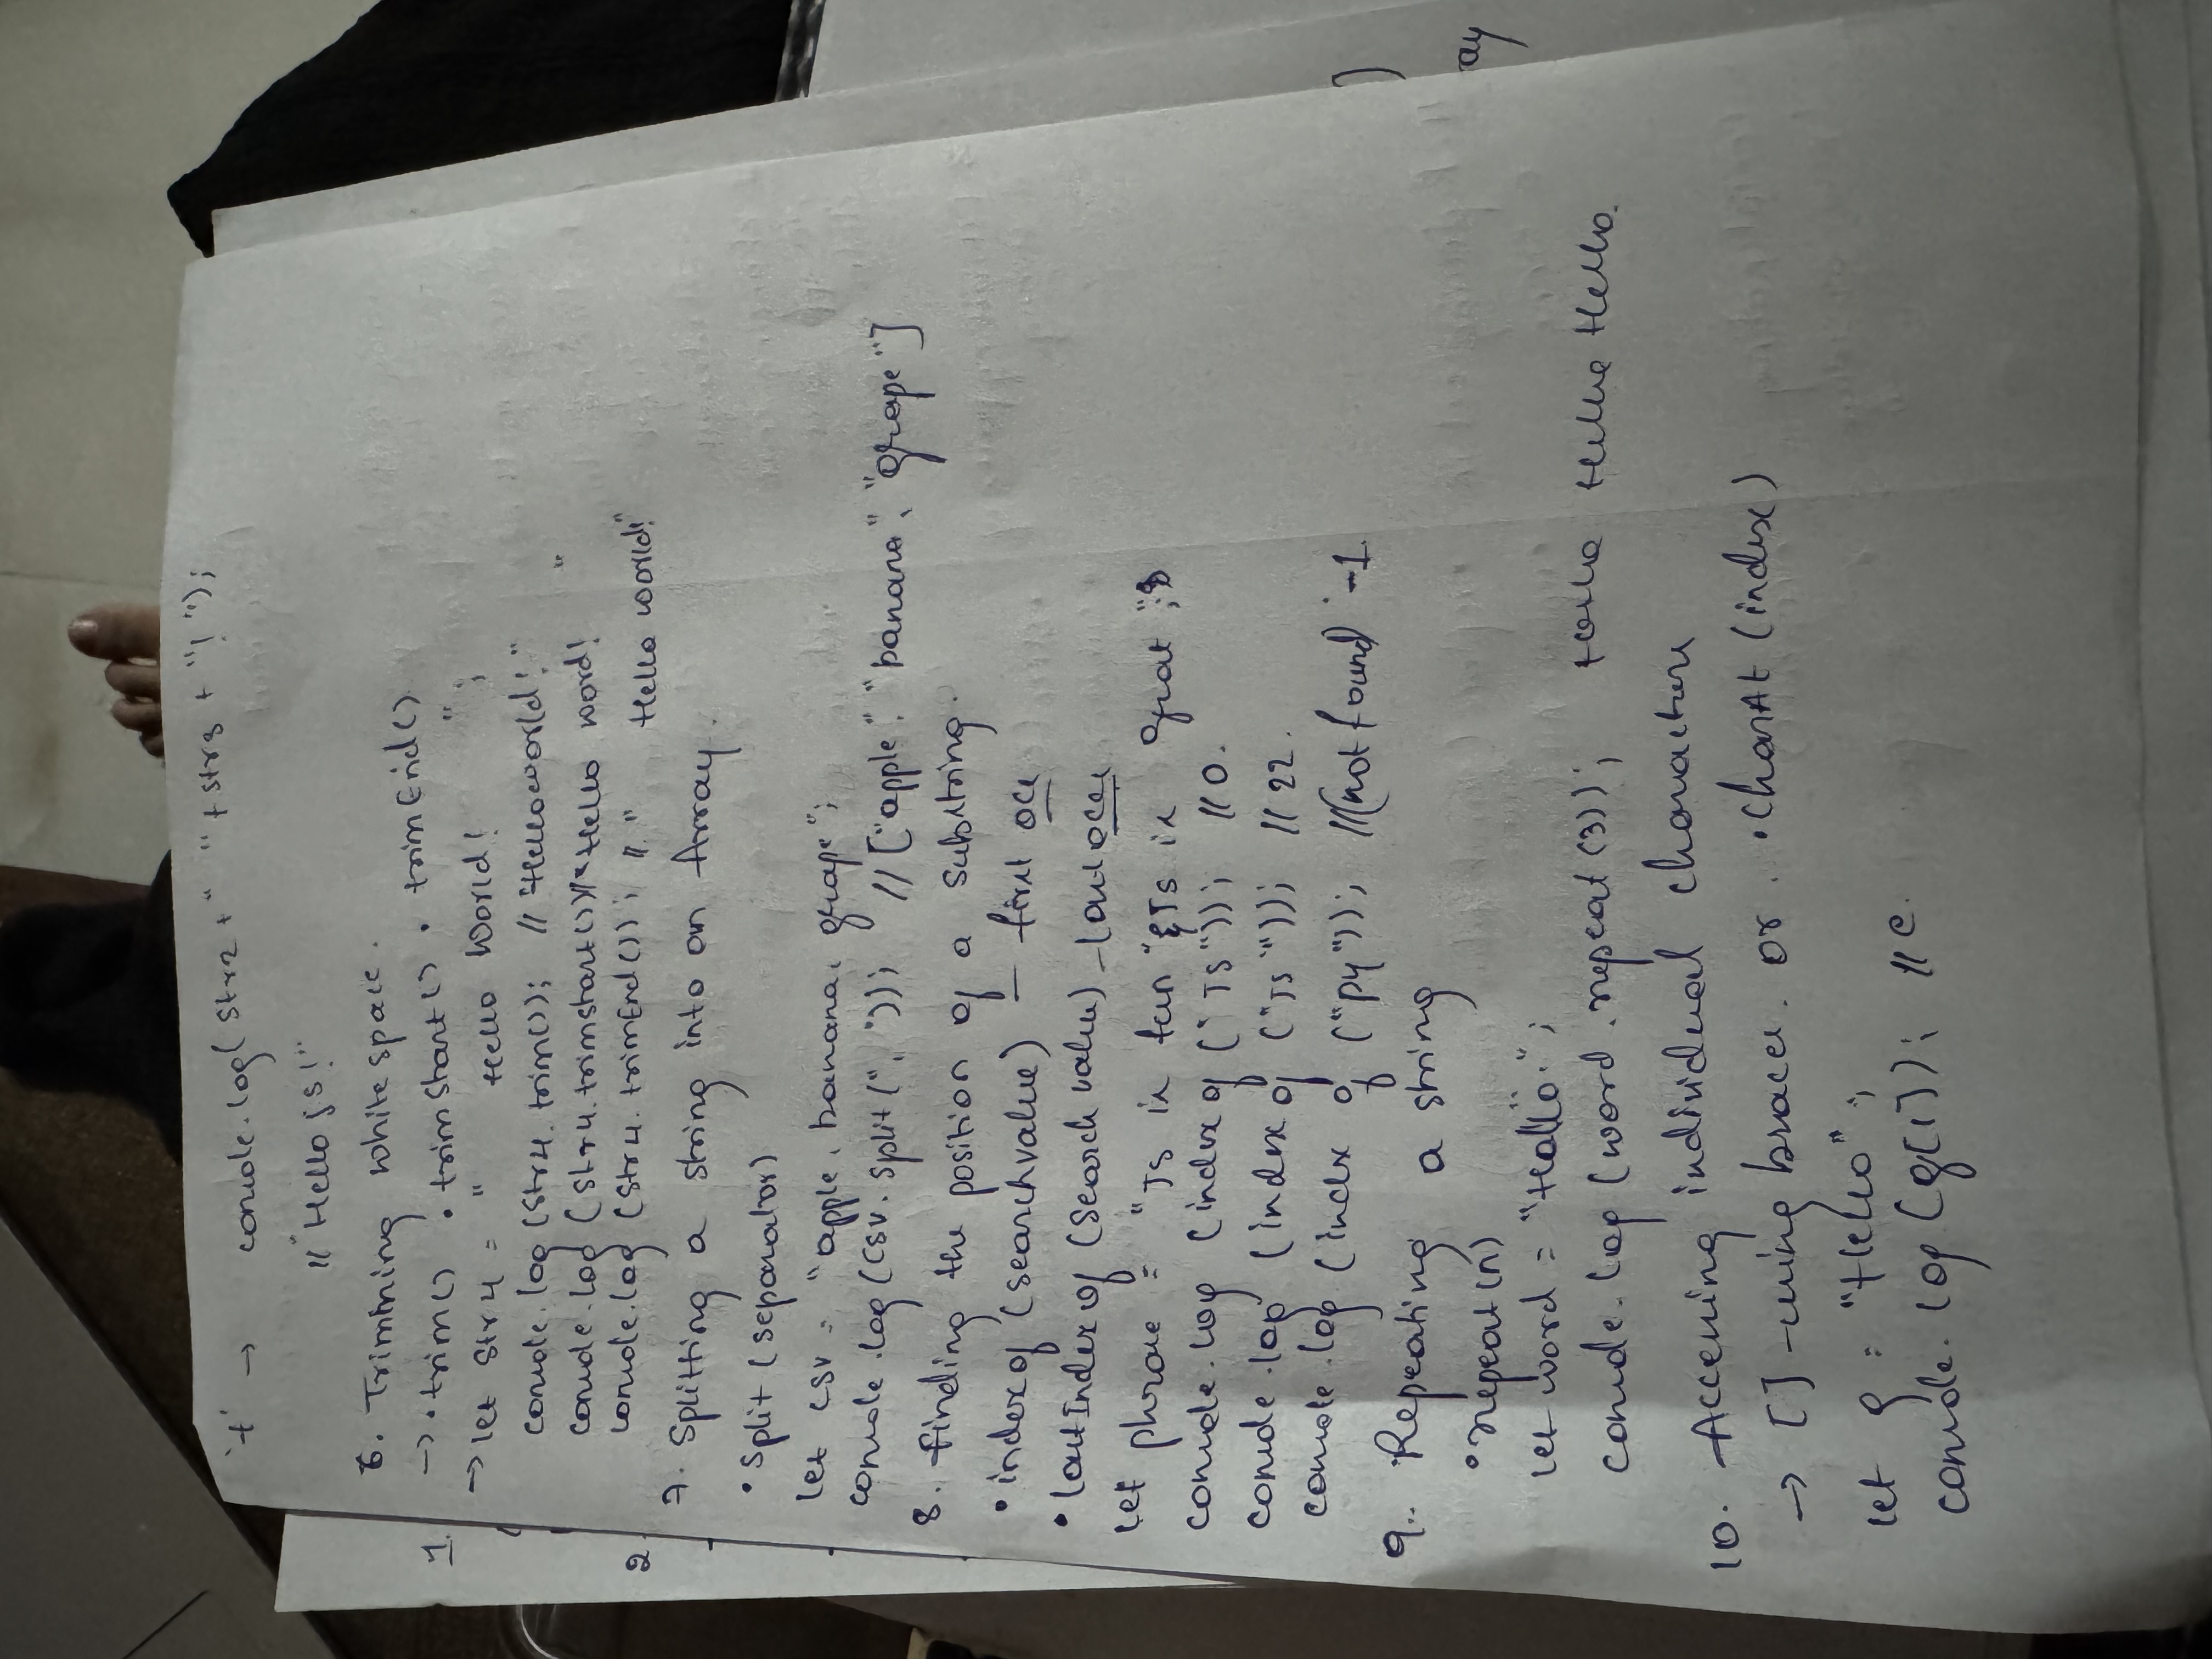 '+' → console.log( Str2 + " " + str3 + "! ");
// "Hello JS!"
6. Trimming whitespace.
1. → • trim() • trimStart() • trimEnd()
→ let Str4 = " Hello World! ";
console.log (Str4. trim()); // "Hello world!"
console.log (Str4.trimstart()) // "Hello word! "
2. console.log (Str4. trimEnd()); // " Hello world!"
7. Splitting a string into an Array.
• split (separator)
let csv = "apple, banana, grape";
console.log((csv. split(", ")); // ["apple", "banana", "grape"]
8. finding the position of a substring.
• index of (searchvalue) – first occ
• lastIndex of (Search value) – last occ
let phrase = "Js is fun & Js is great ";
console.log (index of ("Js")); // 0.
console.log (index of ("Js")); // 22.
console.log (index of ("py")); // (not found) -1.
9. Repeating a string
• repeat(n)
ay
let word = "Hello ";
console.log (word. repeat (3)); Hello Hello Hello.
10. Accessing individual characters
→ [] -using braces. or • CharAt (index)
let g = "Hello";
console.log (g[1]); // e.